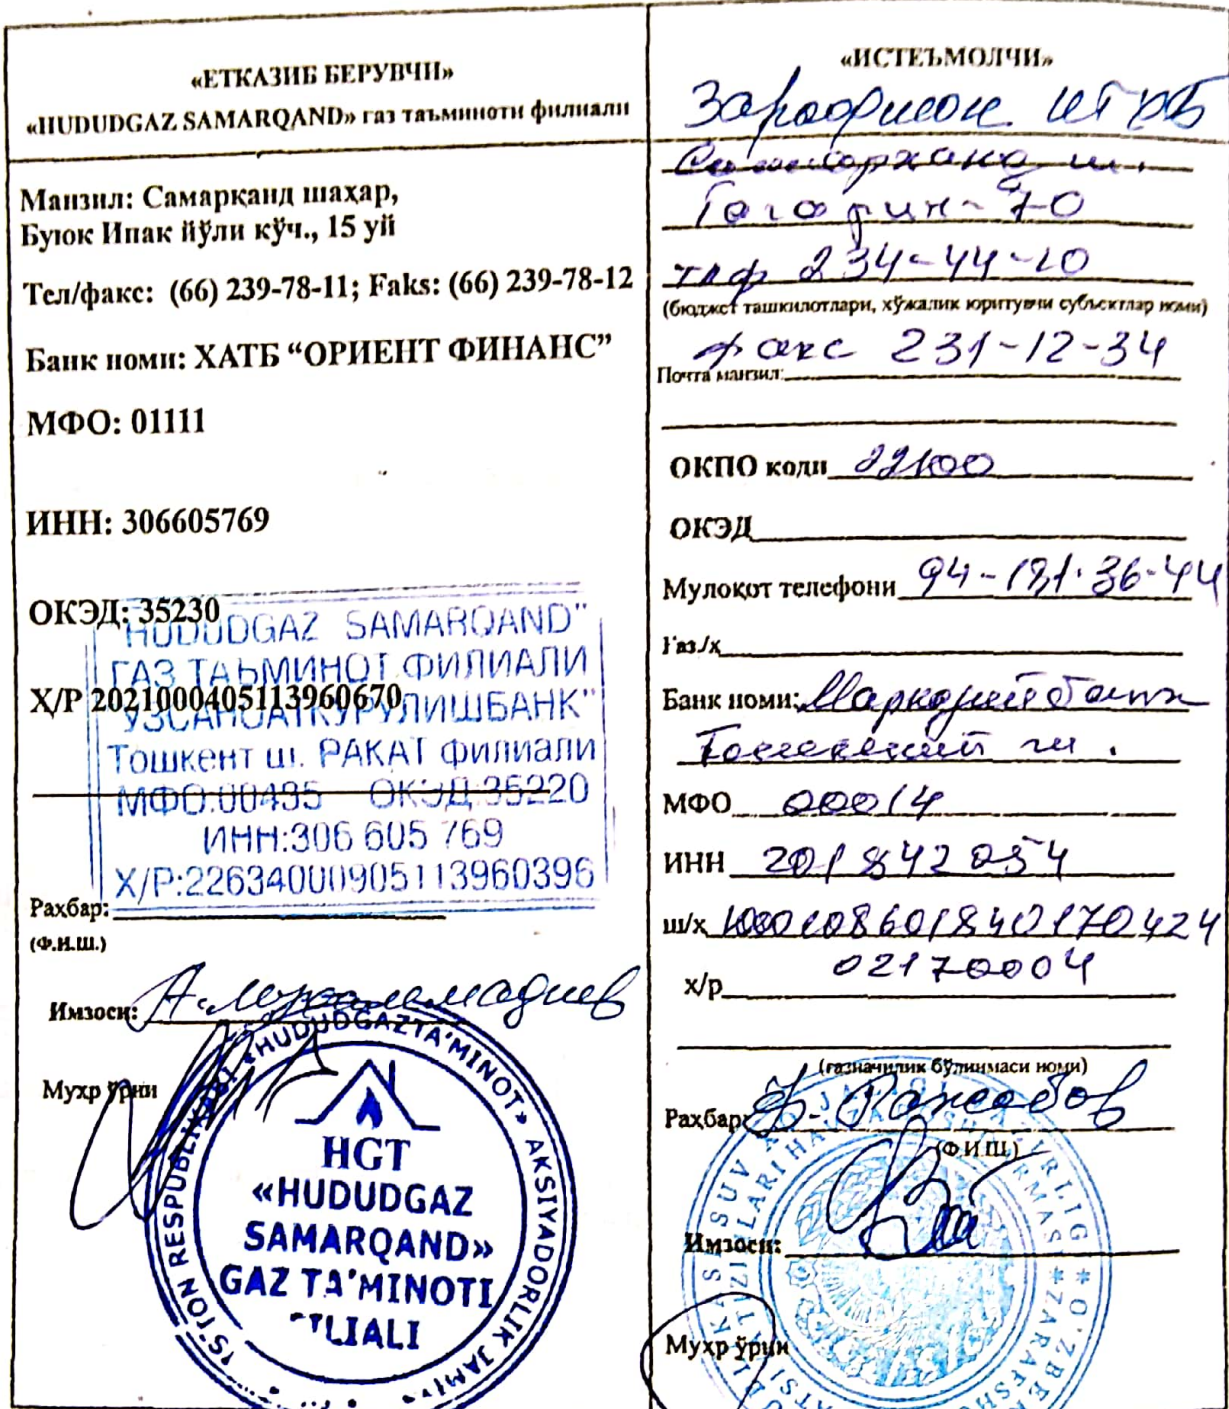 «ЕТКАЗИБ БЕРУВЧИ»
«HUDUDGAZ SAMARQAND» газ таъминоти филиали
Манзил: Самарқанд шаҳар,
Буюк Ипак йўли кўч., 15 уй
Тел/факс: (66) 239-78-11; Faks: (66) 239-78-12
Банк номи: ХАТБ “ОРИЕНТ ФИНАНС”
МФО: 01111
ИНН: 306605769
ОКЭД: 35230
Х/Р 2021000405113960670
"HUDUDGAZ SAMARQAND"
ГАЗ ТАЬМИНОТ ФИЛИАЛИ
УЗСАНОАТКУРУЛИШБАНК"
Тошкент ш. РАКАТ филиали
МФО:00435 ОКЭД:35220
ИНН:306 605 769
Х/Р:22634000905113960396
Раҳбар:
(Ф.И.Ш.)
Имзоси:
Муҳр ўрни
«HUDUDGAZTA'MINOT» AKSIYADORLIK JAMI
HGT
«HUDUDGAZ
SAMARQAND»
GAZ TA'MINOTI
FILIALI
«ИСТЕЪМОЛЧИ»
Зарафшон ИТҲБ
Самарханд ш.
Гагарин-70
тлф 234-44-10
(бюджет ташкилотлари, хўжалик юритувчи субъектлар номи)
факс 231-12-34
Почта манзил:
ОКПО коди 22100
ОКЭД
Мулоқот телефони 94-191-36-44
Ғаз./х
Банк номи: Марказий банк
Тошкент ш.
МФО 00014
ИНН 201842054
ш/х 100010860184017042402170004
х/р
(ғазначилик бўлинмаси номи)
Раҳбар:
(Ф.И.Ш.)
Имзоси:
Муҳр ўрни